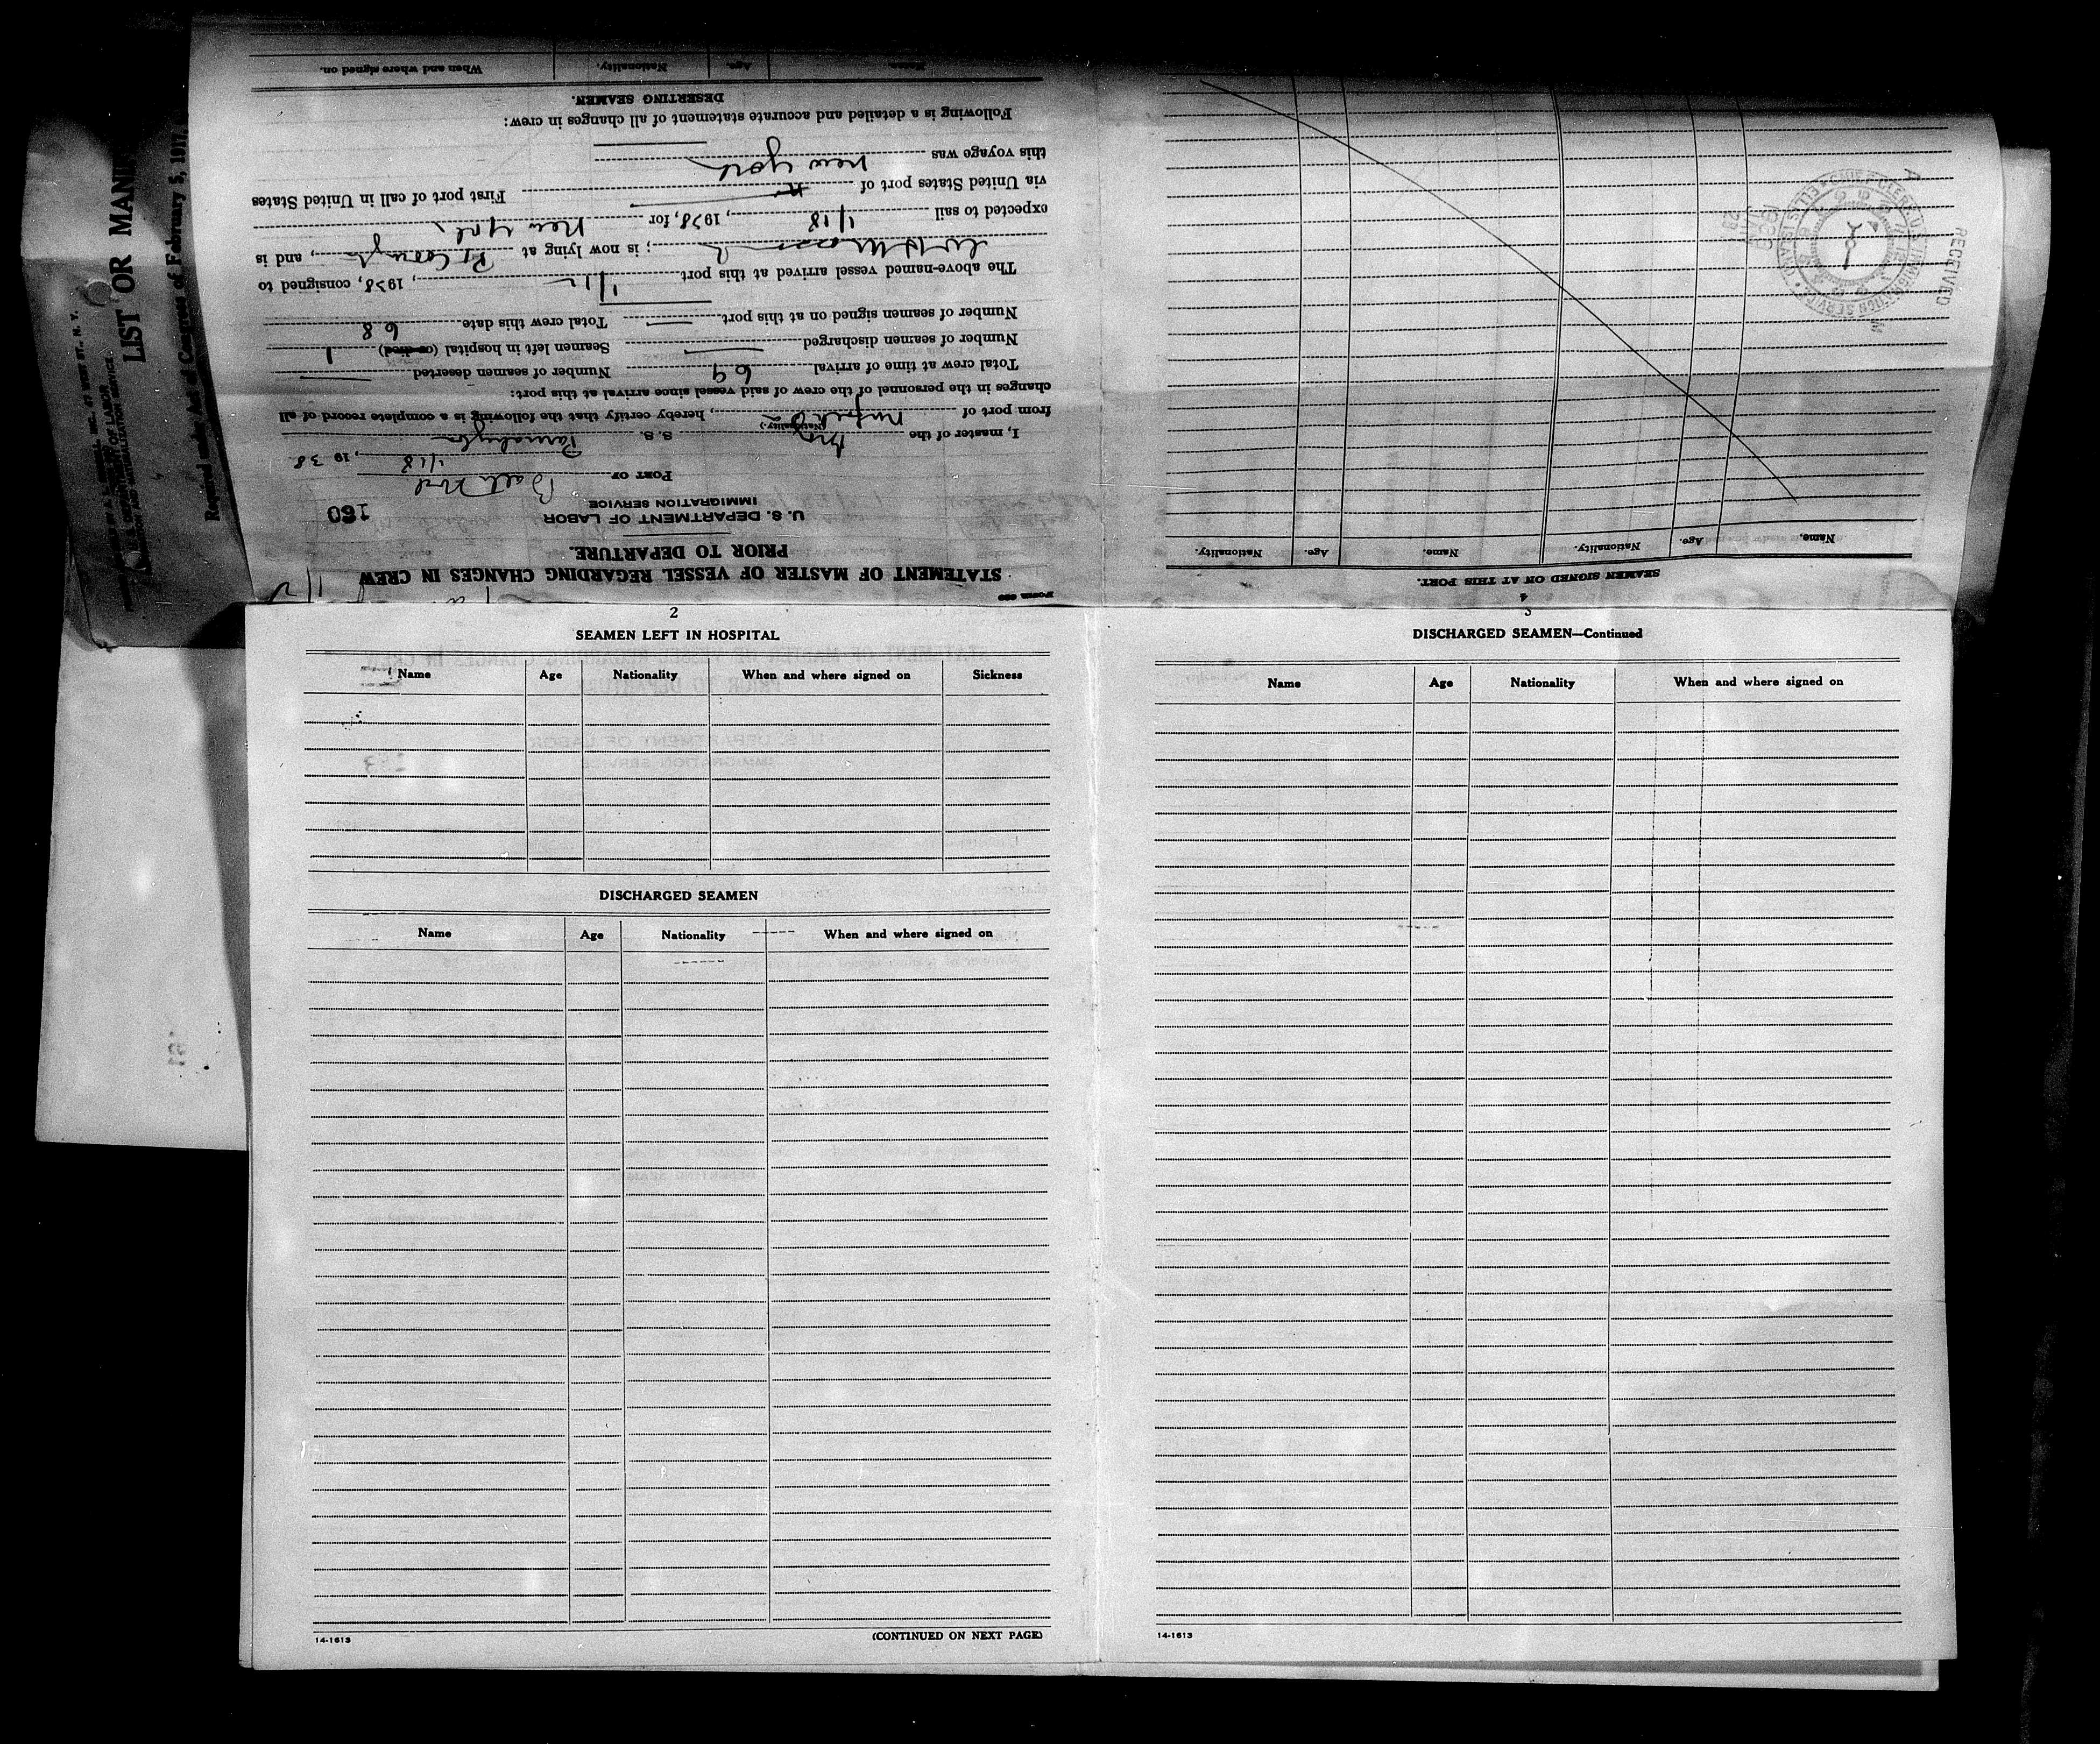 LIST OR
Required under Act of Congress of February 5, 1917,
FORM 689
STATEMENT OF MASTER OF VESSEL REGARDING CHANGES IN CREW
PRIOR TO DEPARTURE.
U. S. DEPARTMENT OF LABOR
IMMIGRATION SERVICE
160
PORT OF Balto Md
1/18, 1938
I, master of the S. S.
(Nationality.)
from port of , hereby certify that the following is a complete record of all
changes in the personnel of the crew of said vessel since arrival at this port:
Total crew at time of arrival 69 Number of seamen deserted
Number of seamen discharged Seamen left in hospital (or died) 1
Number of seamen signed on at this port Total crew this date 68
The above-named vessel arrived at this port , 1938, consigned to
; is now lying at , and is
expected to sail 1/18, 1938, for New York
via United States port of First port of call in United States
this voyage was New York
Following is a detailed and accurate statement of all changes in crew:
DESERTING SEAMEN.
Name. Age. Nationality. When and where signed on.
4
SEAMEN SIGNED ON AT THIS PORT.
Name. Age. Nationality. Name. Age. Nationality.
RECEIVED
2
SEAMEN LEFT IN HOSPITAL
Name Age Nationality When and where signed on Sickness
DISCHARGED SEAMEN
Name Age Nationality When and where signed on
14-1613 (CONTINUED ON NEXT PAGE)
3
DISCHARGED SEAMEN—Continued
Name Age Nationality When and where signed on
14-1613